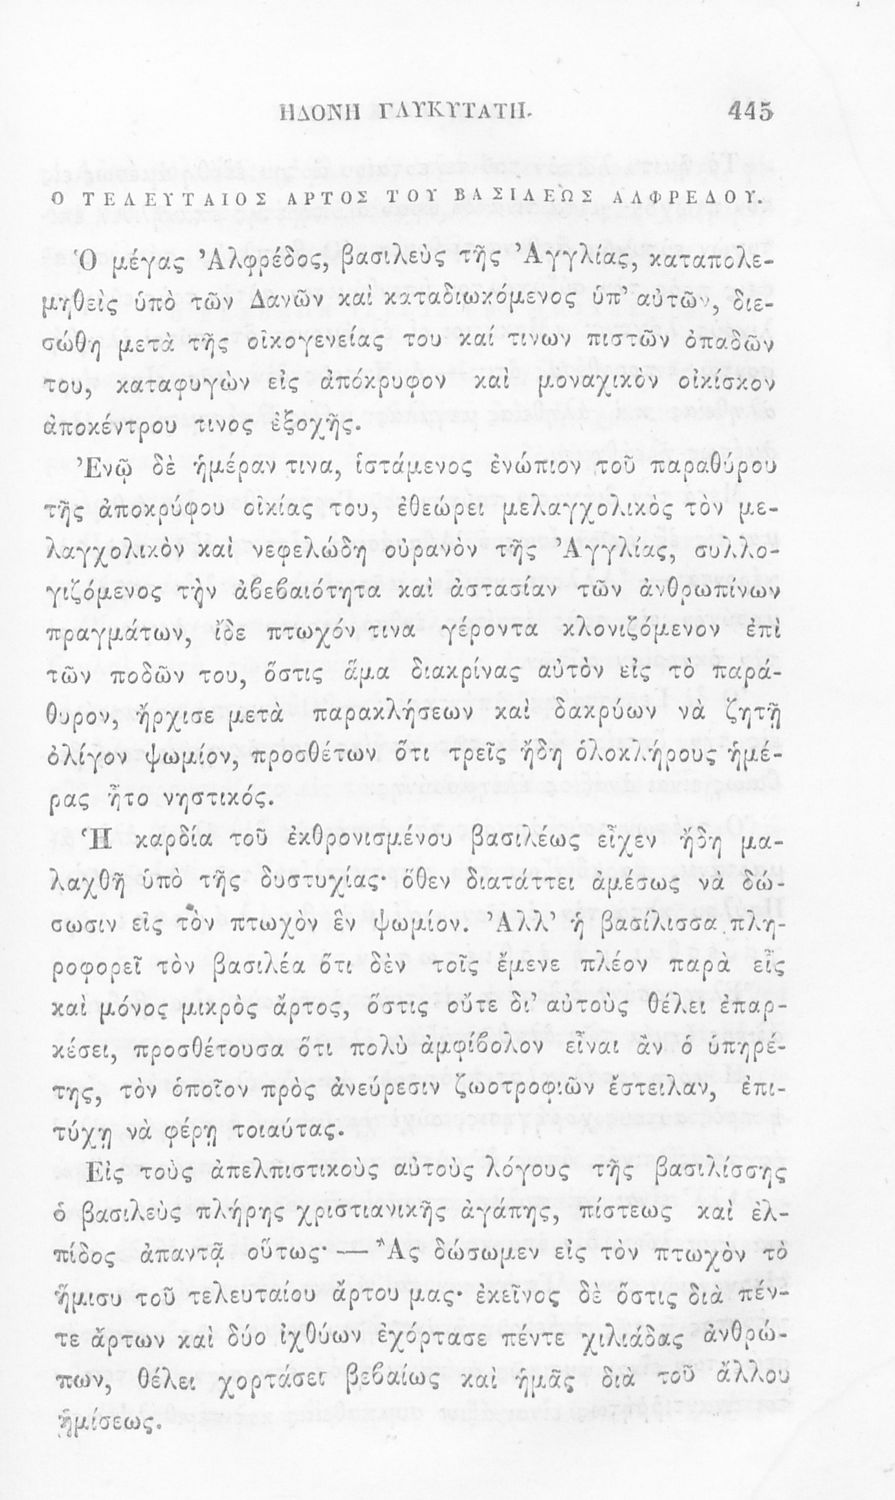 ΗΔΟΝΗ ΓΛΥΚΥΤΑΤΗ. 445
Ο ΤΕΛΕΥΤΑΙΟΣ ΑΡΤΟΣ ΤΟΥ ΒΑΣΙΛΕΩΣ ΑΛΦΡΕΔΟΥ.
Ὁ μέγας Ἀλφρέδος, βασιλεὺς τῆς Ἀγγλίας, καταπολε-
μηθεὶς ὑπὸ τῶν Δανῶν καὶ καταδιωκόμενος ὑπ’ αὐτῶν, διε-
σώθη μετὰ τῆς οἰκογενείας του καί τινων πιστῶν ὀπαδῶν
του, καταφυγὼν εἰς ἀπόκρυφον καὶ μοναχικὸν οἰκίσκον
ἀποκέντρου τινος ἐξοχῆς.
Ἐνῷ δὲ ἡμέραν τινα, ἱστάμενος ἐνώπιον τοῦ παραθύρου
τῆς ἀποκρύφου οἰκίας του, ἐθεώρει μελαγχολικὸς τὸν με-
λαγχολικὸν καὶ νεφελώδη οὐρανὸν τῆς Ἀγγλίας, συλλο-
γιζόμενος τὴν ἀβεβαιότητα καὶ ἀστασίαν τῶν ἀνθρωπίνων
πραγμάτων, ἴδε πτωχόν τινα γέροντα κλονιζόμενον ἐπὶ
τῶν ποδῶν του, ὅστις ἅμα διακρίνας αὐτὸν εἰς τὸ παρά-
θυρον, ἤρχισε μετὰ παρακλήσεων καὶ δακρύων νὰ ζητῇ
ὀλίγον ψωμίον, προσθέτων ὅτι τρεῖς ἤδη ὁλοκλήρους ἡμέ-
ρας ἦτο νηστικός.
Ἡ καρδία τοῦ ἐκθρονισμένου βασιλέως εἶχεν ἤδη μα-
λαχθῆ ὑπὸ τῆς δυστυχίας· ὅθεν διατάττει ἀμέσως νὰ δώ-
σωσιν εἰς τὸν πτωχὸν ἓν ψωμίον. Ἀλλ’ ἡ βασίλισσα πλη-
ροφορεῖ τὸν βασιλέα ὅτι δὲν τοῖς ἔμενε πλέον παρὰ εἷς
καὶ μόνος μικρὸς ἄρτος, ὅστις οὔτε δι’ αὐτοὺς θέλει ἐπαρ-
κέσει, προσθέτουσα ὅτι πολὺ ἀμφίβολον εἶναι ἂν ὁ ὑπηρέ-
της, τὸν ὁποῖον πρὸς ἀνεύρεσιν ζωοτροφιῶν ἔστειλαν, ἐπι-
τύχῃ νὰ φέρῃ τοιαύτας.
Εἰς τοὺς ἀπελπιστικοὺς αὐτοὺς λόγους τῆς βασιλίσσης
ὁ βασιλεὺς πλήρης χριστιανικῆς ἀγάπης, πίστεως καὶ ἐλ-
πίδος ἀπαντᾷ οὕτως· — Ἂς δώσωμεν εἰς τὸν πτωχὸν τὸ
ἥμισυ τοῦ τελευταίου ἄρτου μας· ἐκεῖνος δὲ ὅστις διὰ πέν-
τε ἄρτων καὶ δύο ἰχθύων ἐχόρτασε πέντε χιλιάδας ἀνθρώ-
πων, θέλει χορτάσει βεβαίως καὶ ἡμᾶς διὰ τοῦ ἄλλου
ἡμίσεως.